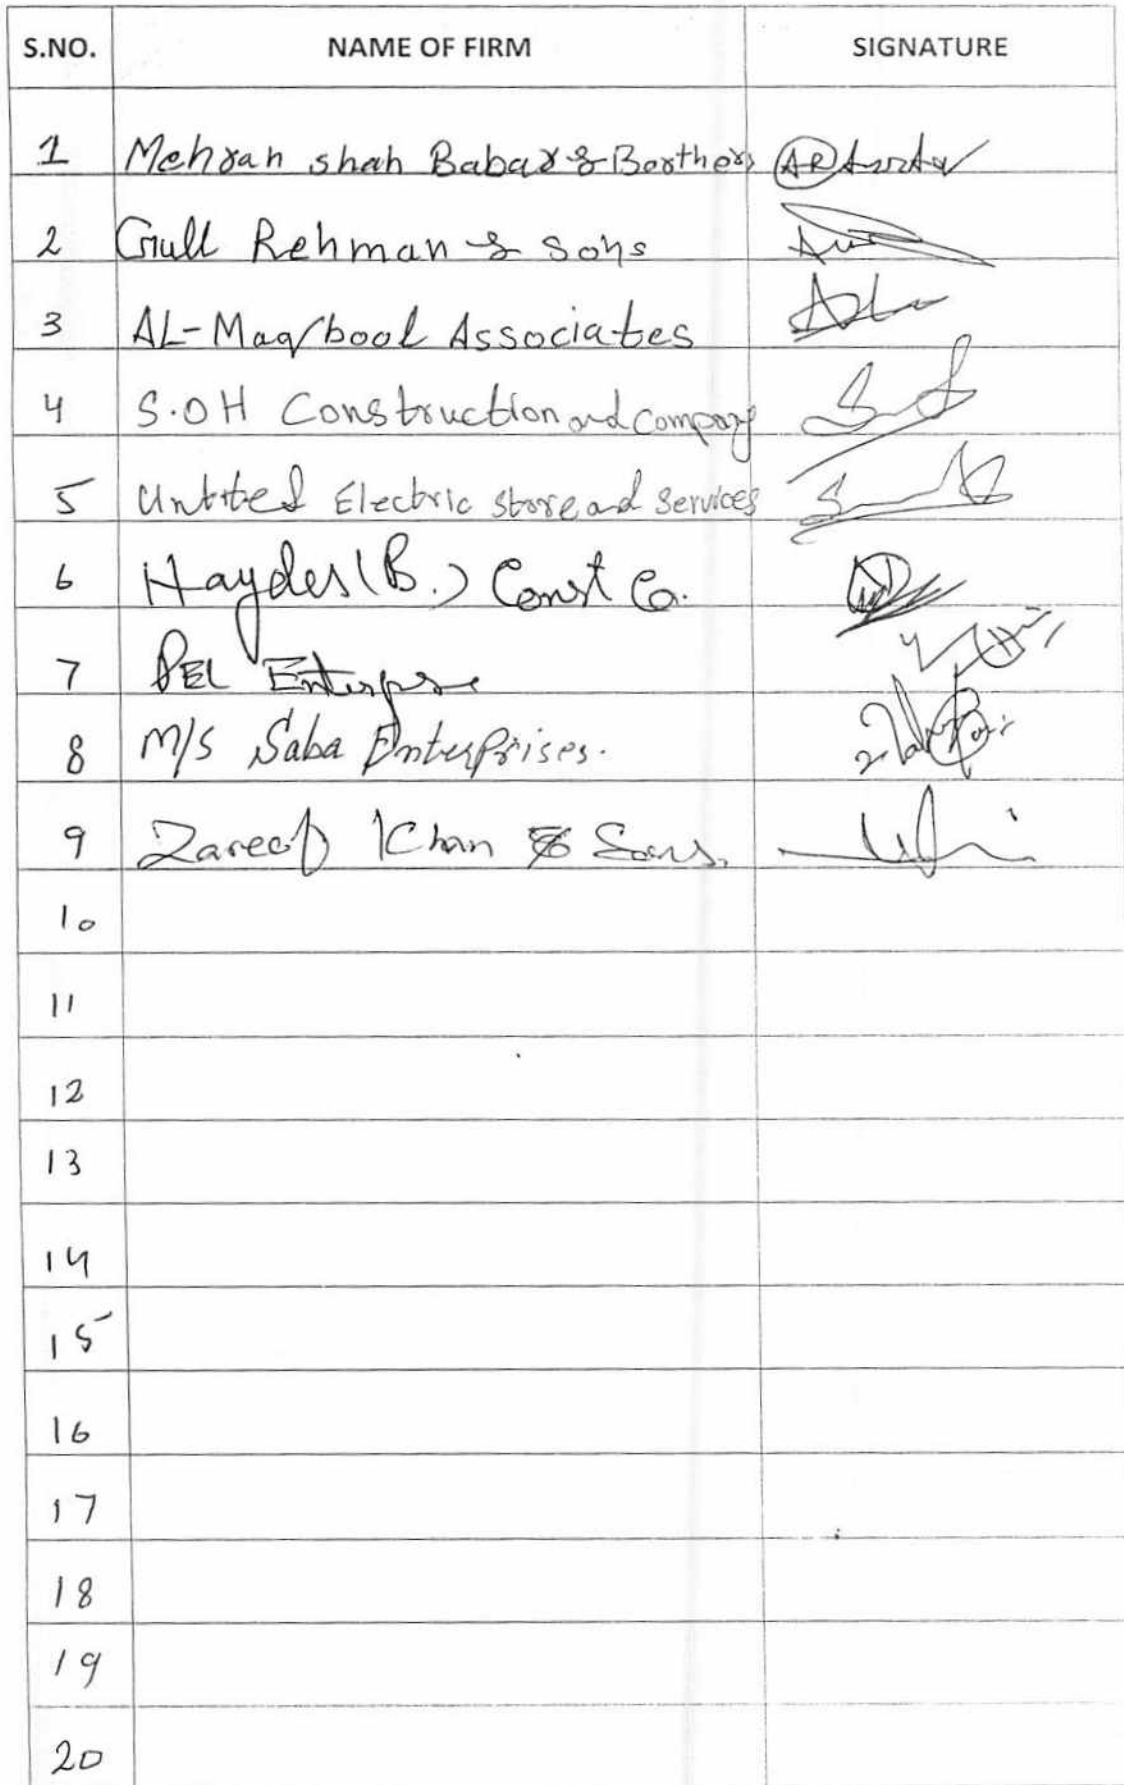 S.NO. NAME OF FIRM SIGNATURE
1 Mehran shah Babar & Borthers
2 Gull Rehman & Sons
3 AL-Maqbool Associates
4 S.OH Construction and Company
5 Untited Electric Store and Services
6 Hayder (B.) Const Co.
7 PEL Enterpse
8 M/S Saba Enterprises.
9 Zareef Khan & Sons.
10
11
12
13
14
15
16
17
18
19
20